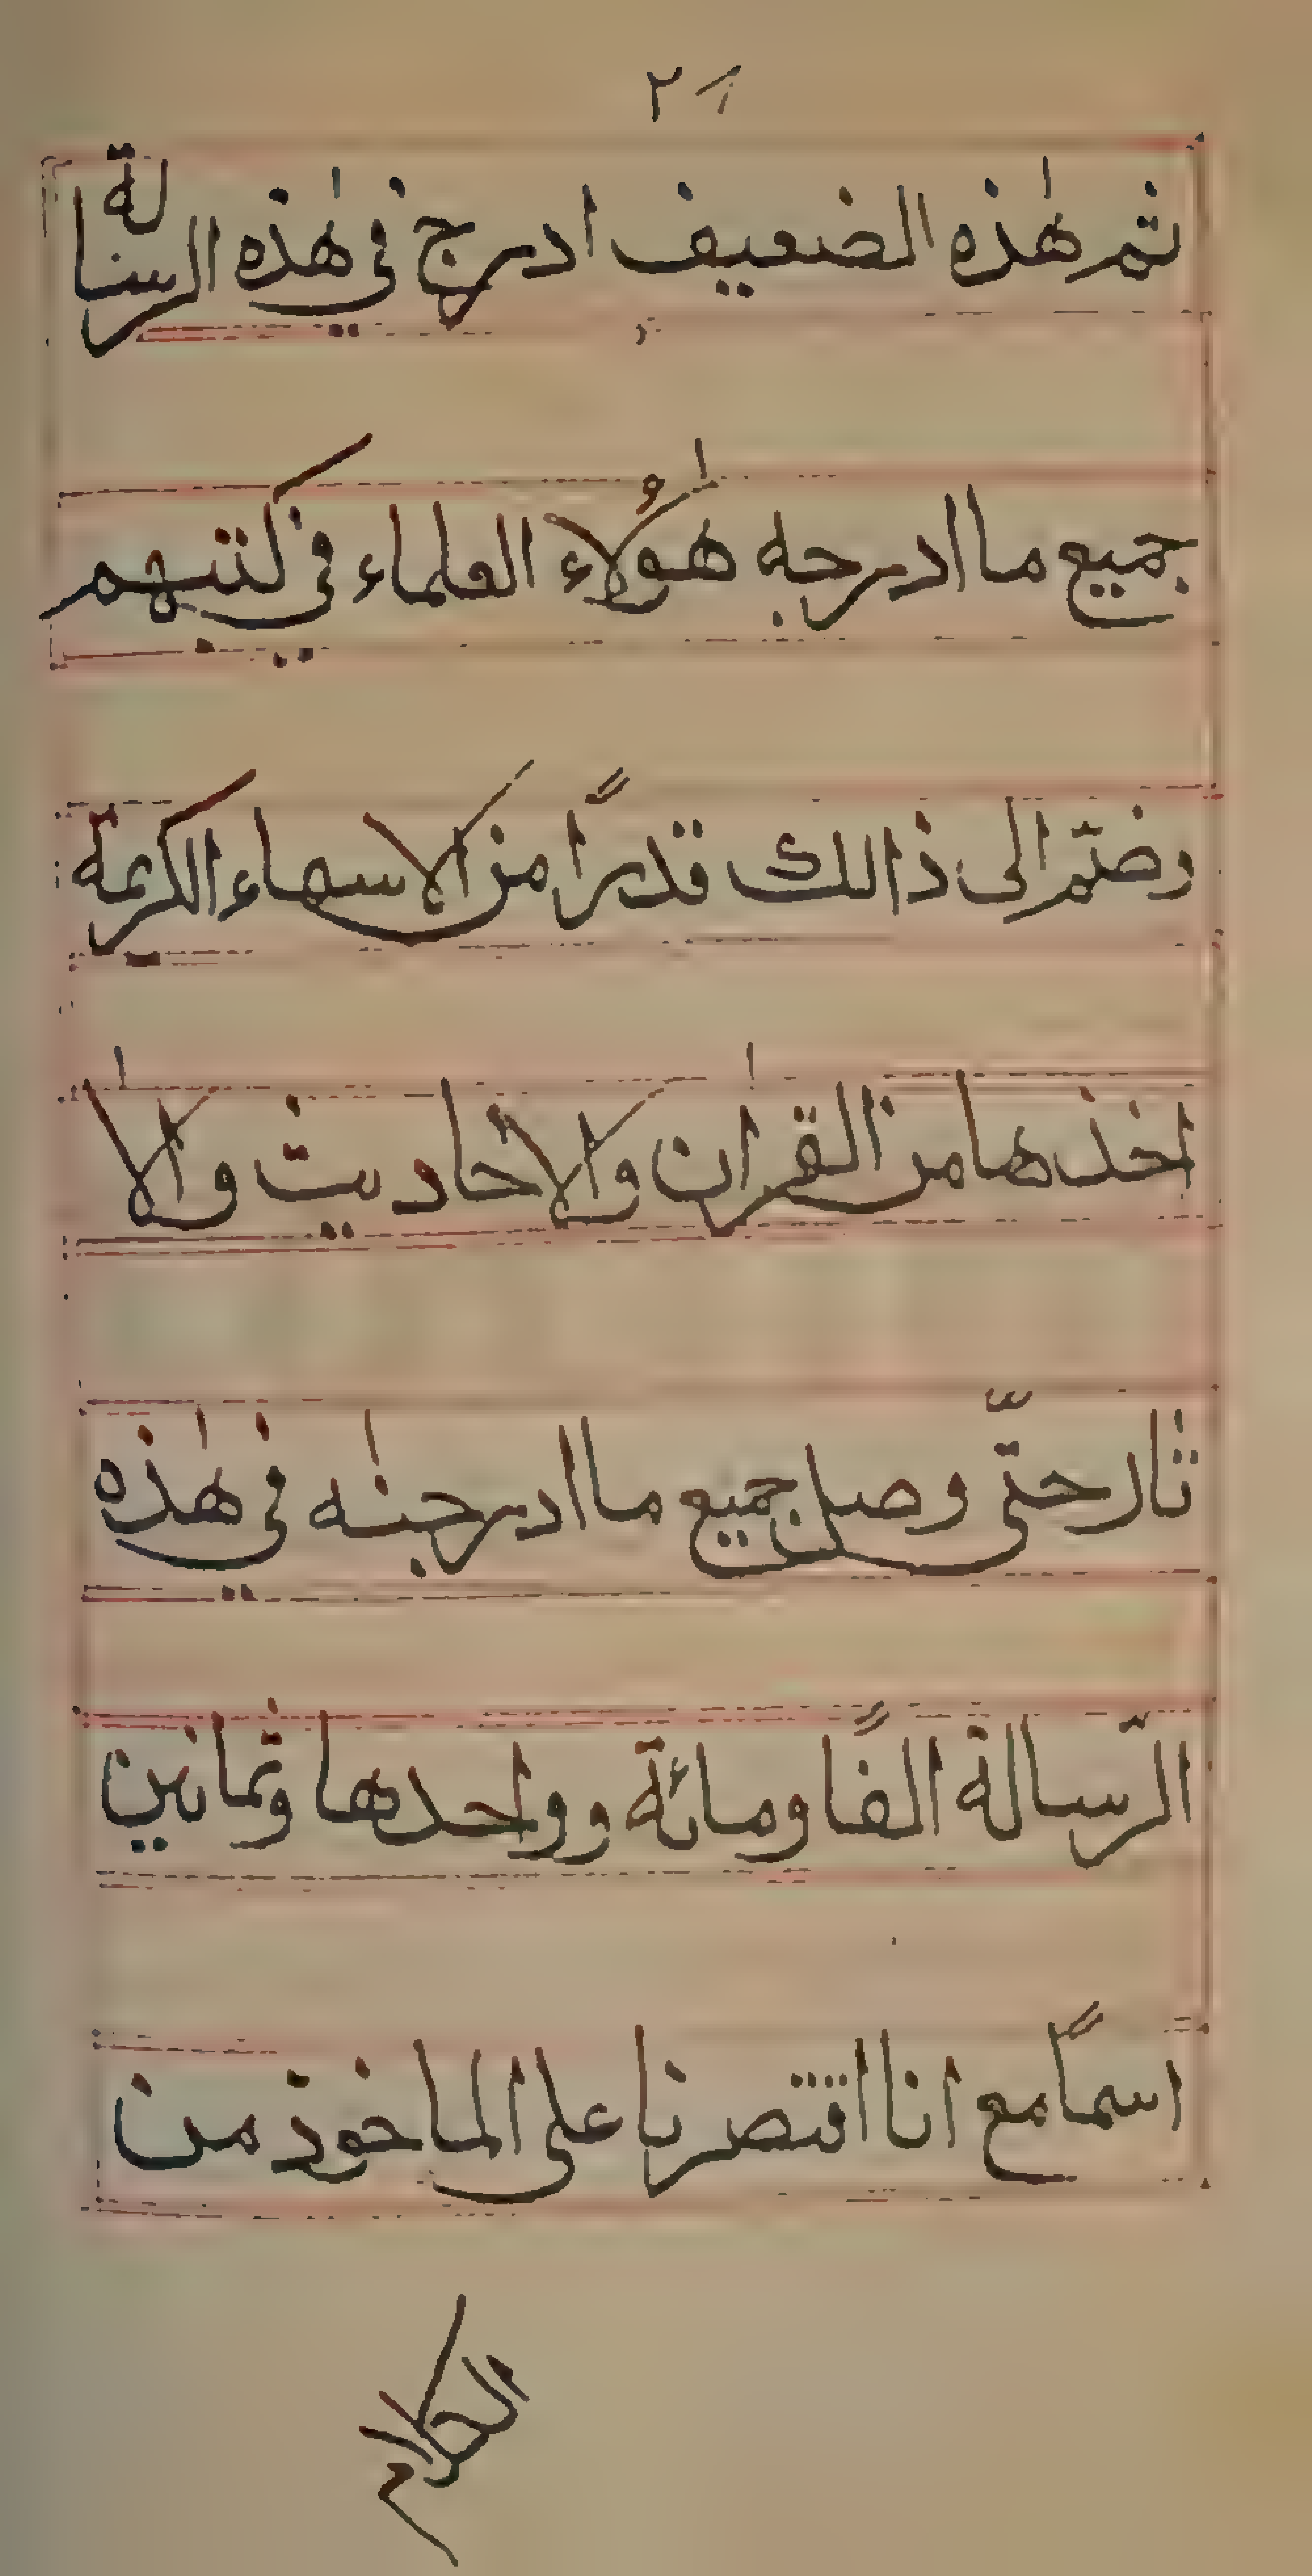 ثم هٰذه الضعيف ادرج في هٰذه الرسالة
جميع ما ادرجه هٰؤلاء العلماء في كتبهم
وضمّ الى ذالك قدرًا من الاسماء الكريمة
اخذها من القرٰان والاحاديث والاٰ
ثار حتّى وصل جميع ما ادرجنٰه في هٰذه
الرّسالة الفًا ومائة وواحدها وثمانين
اسمًا مع انا اقتصرنا على الماخوذ من
الكلام